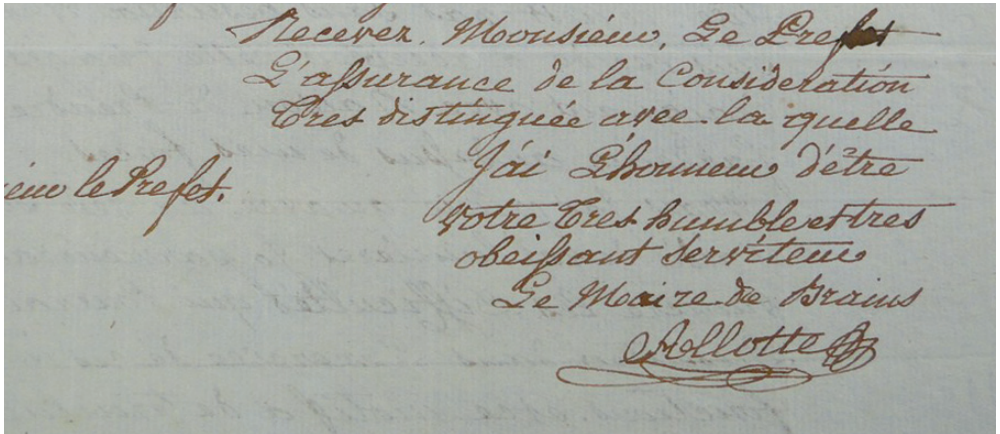 Recevez, Monsieur, Le Prefet
L'assurance de la Consideration
Tres distinguée avec la quelle
J'ai L'honneur d'être
ieur le Prefet.
votre Tres humble et tres
obeissant serviteur
Le Maire de Brains
Rollotte